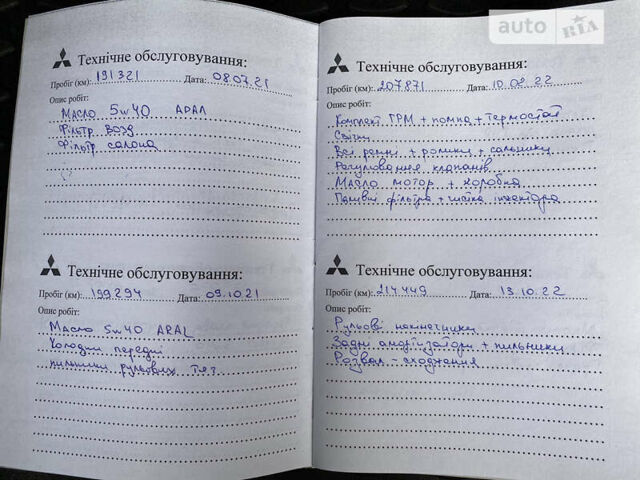 auto RIA
Технічне обслуговування:
Пробіг (км): 191321 Дата: 08.07.21
Опис робіт:
Масло 5w40 ARAL
Фільтр возд
Фільтр салона
Технічне обслуговування:
Пробіг (км): 199294 Дата: 09.10.21
Опис робіт:
Масло 5w40 ARAL
Колодки передні
пильники рульових тяг
Технічне обслуговування:
Пробіг (км): 207871 Дата: 10.08.22
Опис робіт:
Комплект ГРМ + помпа + термостат
Свічки
Всі ремни + ролики + сальники
Регулювання клапанів
Масло мотор + коробка
Паливні фільтра + чистка інжектора
Технічне обслуговування:
Пробіг (км): 214449 Дата: 13.10.22
Опис робіт:
Рульові наконечники
Задні амортизатори + пильники
Розвал - сходження